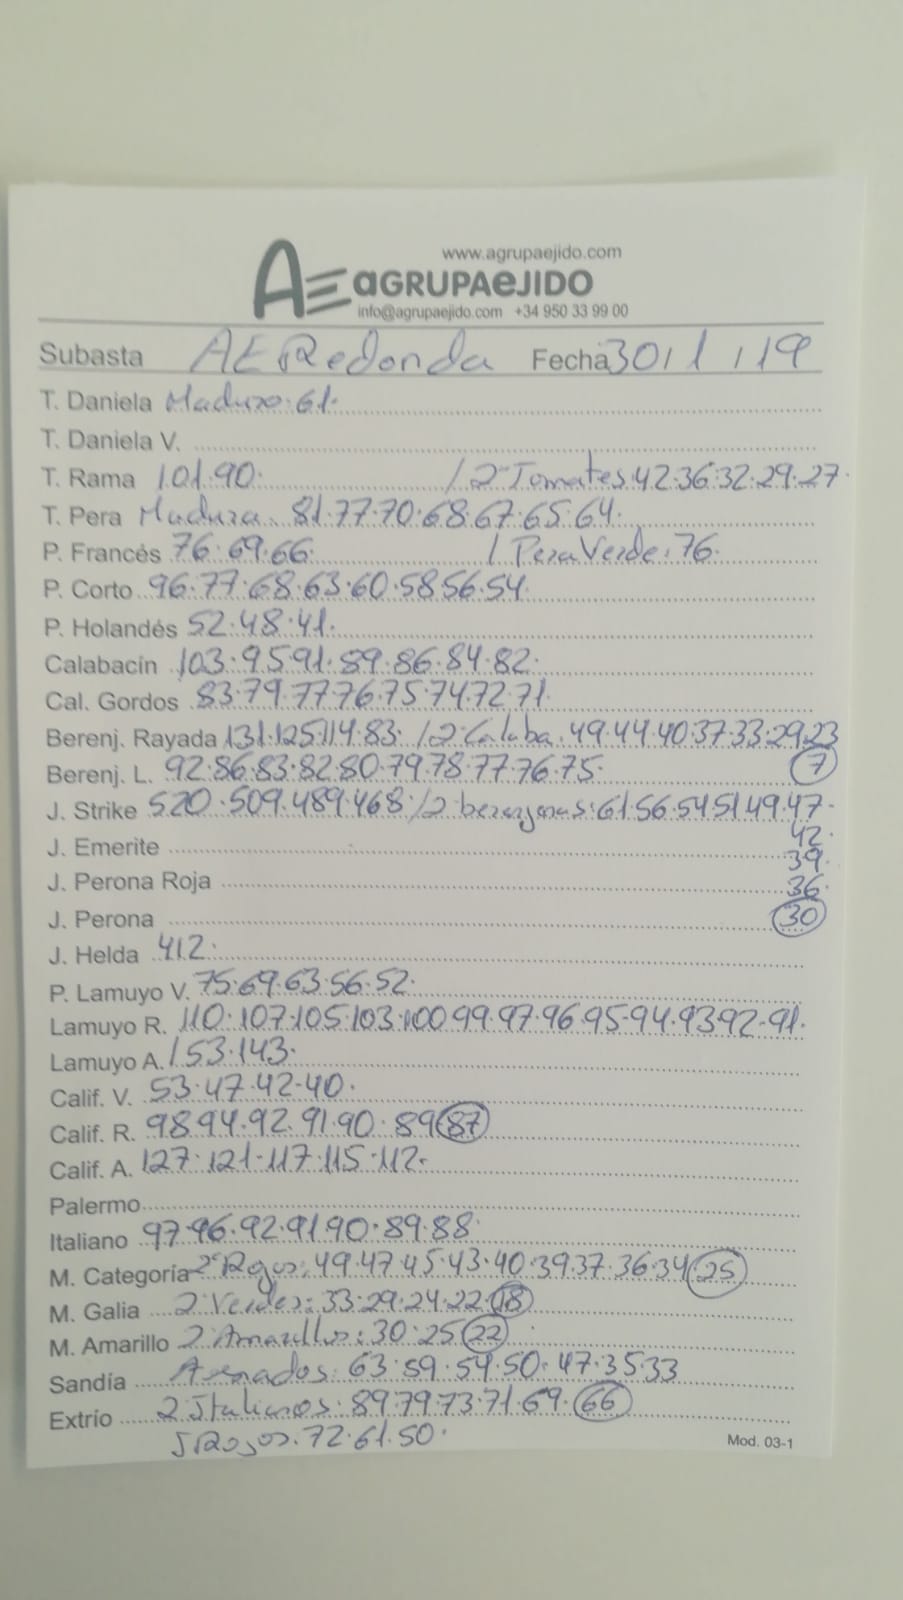 www.agrupaejido.com
AE aGRUPAeJIDO
info@agrupaejido.com +34 950 33 99 00
Subasta AE Redonda Fecha 30/1/19
T. Daniela Maduro. 61.
T. Daniela V.
T. Rama 101.90. / 2ª Tomates. 42.36.32.29.27.
T. Pera Madura. 81.77.70.68.67.65.64.
P. Francés 76.69.66. / Pera Verde. 76.
P. Corto 96.77.68.63.60.58.56.54.
P. Holandés 52.48.41.
Calabacín 103.95.91.89.86.84.82.
Cal. Gordos 83.79.77.76.75.74.72.71.
Berenj. Rayada 131.125.114.83. / 2ª Calaba. 49.44.40.37.33.29.23
Berenj. L. 92.86.83.82.80.79.78.77.76.75. 7
J. Strike 520.509.489.468 / 2 berenjenas: 61.56.54.51.49.47.
42.
J. Emerite
39.
J. Perona Roja
36.
J. Perona 30
J. Helda 412.
P. Lamuyo V. 75.69.63.56.52.
Lamuyo R. 110.107.105.103.100.99.97.96.95.94.93.92.91.
Lamuyo A. 153.143.
Calif. V. 53.47.42.40.
Calif. R. 98.94.92.91.90.89 87
Calif. A. 127.121.117.115.112.
Palermo
Italiano 97.96.92.91.90.89.88.
M. Categoría 2ª Rojos: 49.47.45.43.40.39.37.36.34 25
M. Galia 2 Verdes: 33.29.24.22. 18
M. Amarillo 2 Amarillos: 30.25 22
Sandía Asenados: 63.59.54.50.47.35.33
Extrío 2 Italianos: 89.79.73.71.69. 66
Rojos. 72.61.50.
Mod. 03-1